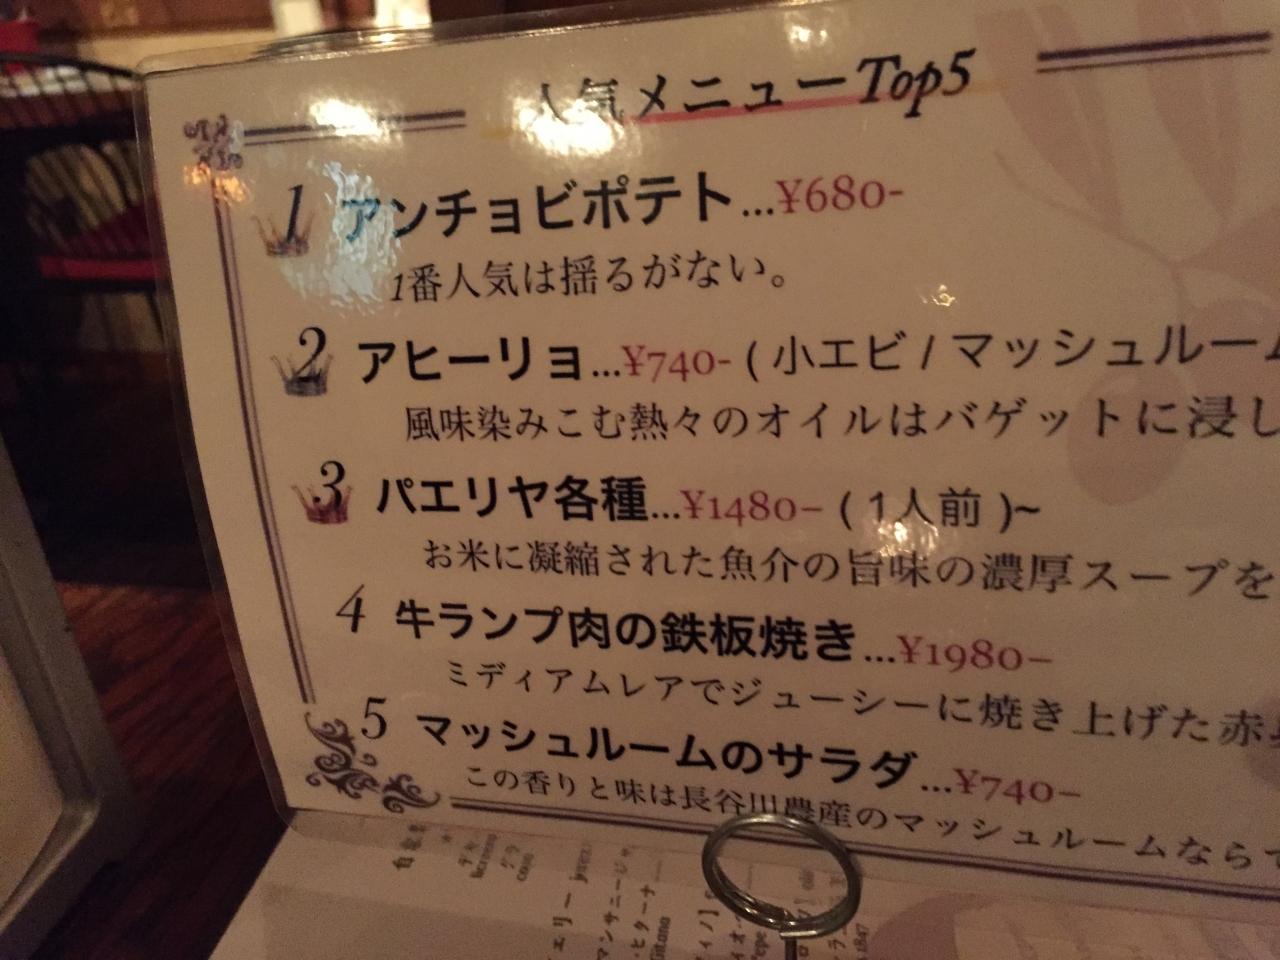 人気メニューTop5
1 アンチョビポテト...¥680-
1番人気は揺るがない。
2 アヒーリョ...¥740- ( 小エビ / マッシュルーム
風味染みこむ熱々のオイルはバゲットに浸し
3 パエリヤ各種...¥1480– ( 1人前 )~
お米に凝縮された魚介の旨味の濃厚スープを
4 牛ランプ肉の鉄板焼き...¥1980–
ミディアムレアでジューシーに焼き上げた赤
5 マッシュルームのサラダ...¥740–
この香りと味は長谷川農産のマッシュルームなら